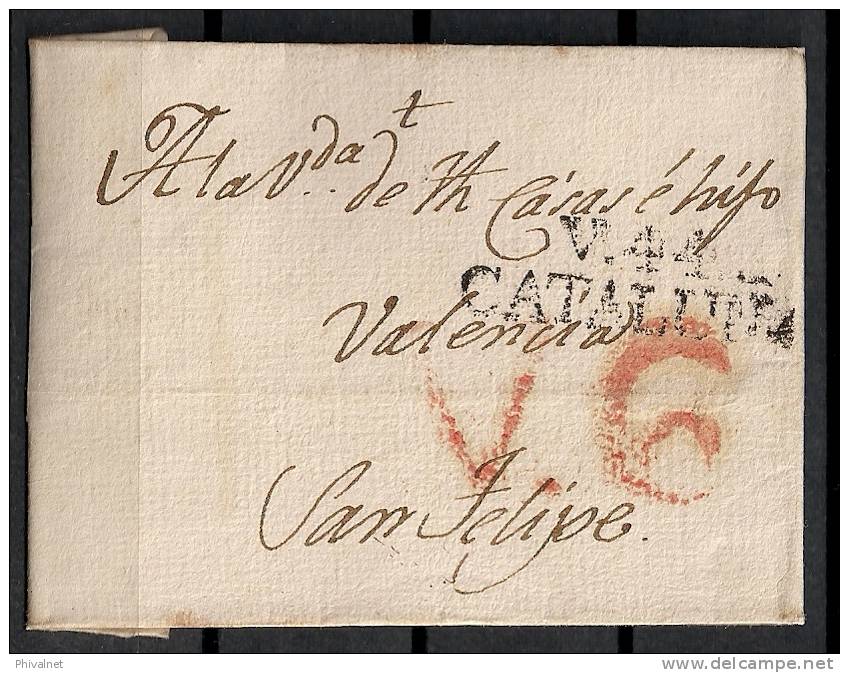 t
A la V.da de Th Casas é hijo
V.44.
CATALUÑA
Valencia
V.6
San Felipe.
Phivalnet
www.delcampe.net